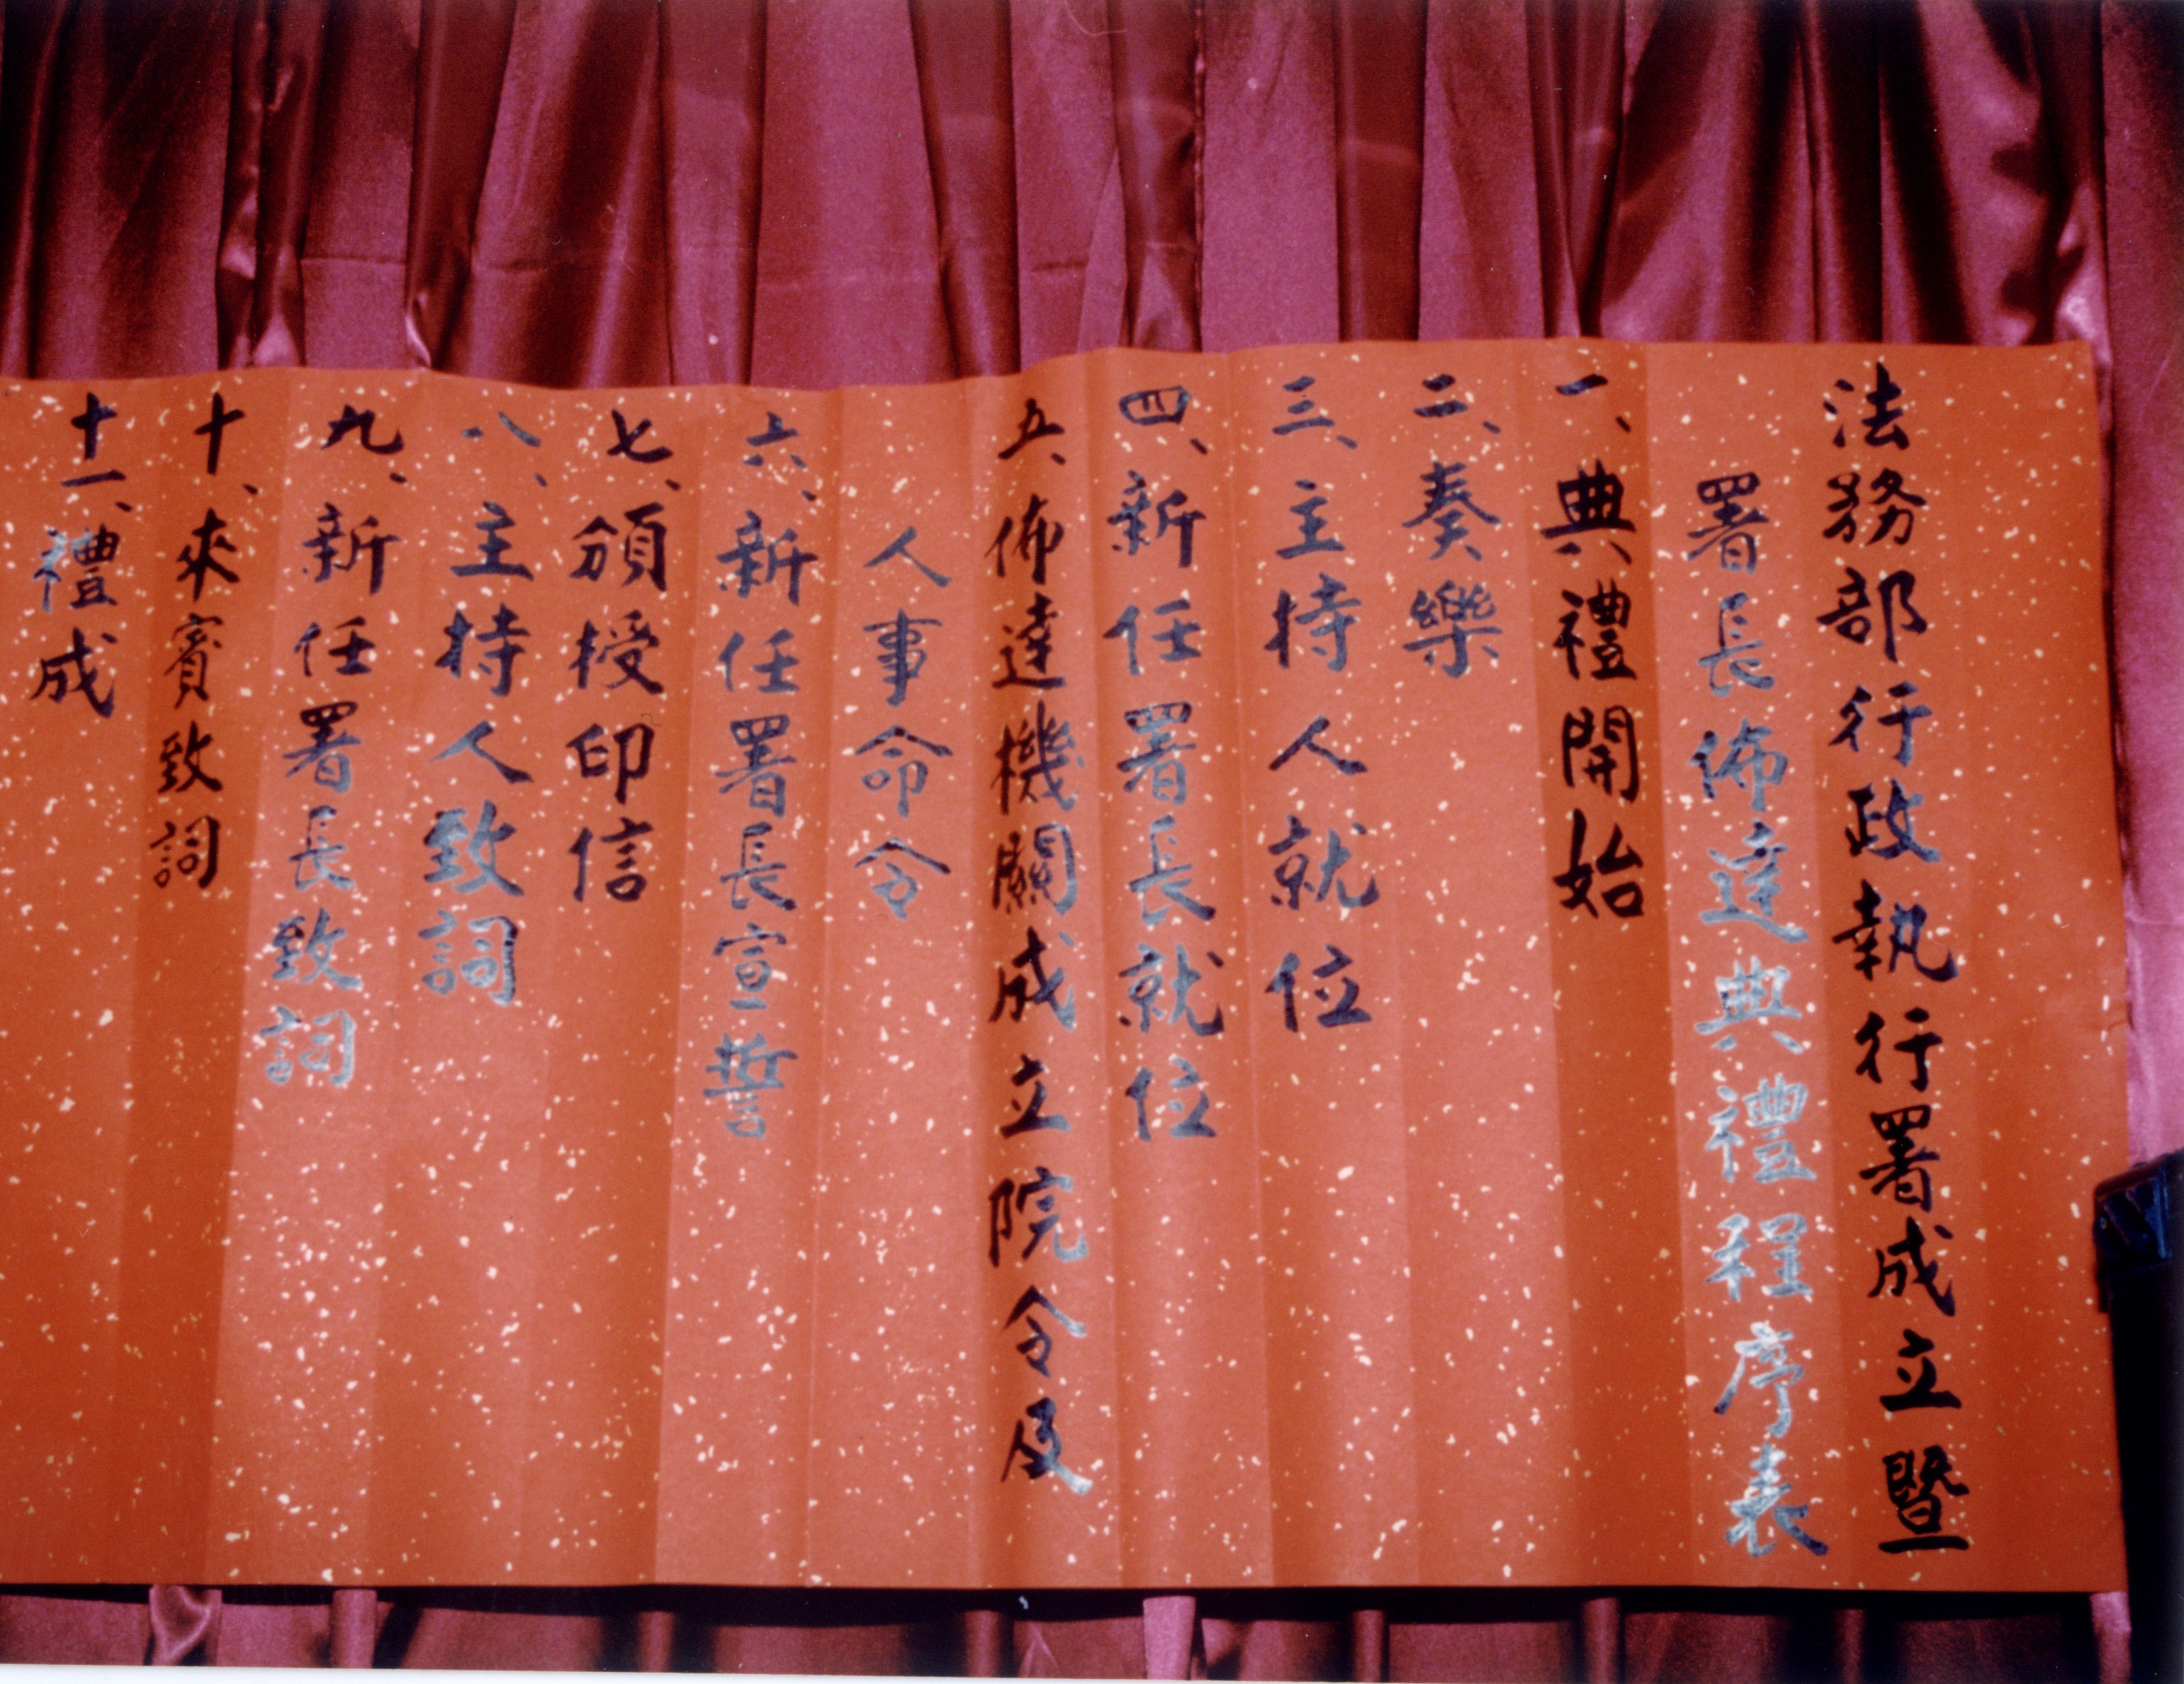 法務部行政執行署成立暨
署長佈達典禮程序表
一、典禮開始
二、奏樂
三、主持人就位
四、新任署長就位
五、佈達機關成立院令及
人事命令
六、新任署長宣誓
七、頒授印信
八、主持人致詞
九、新任署長致詞
十、來賓致詞
十一、禮成